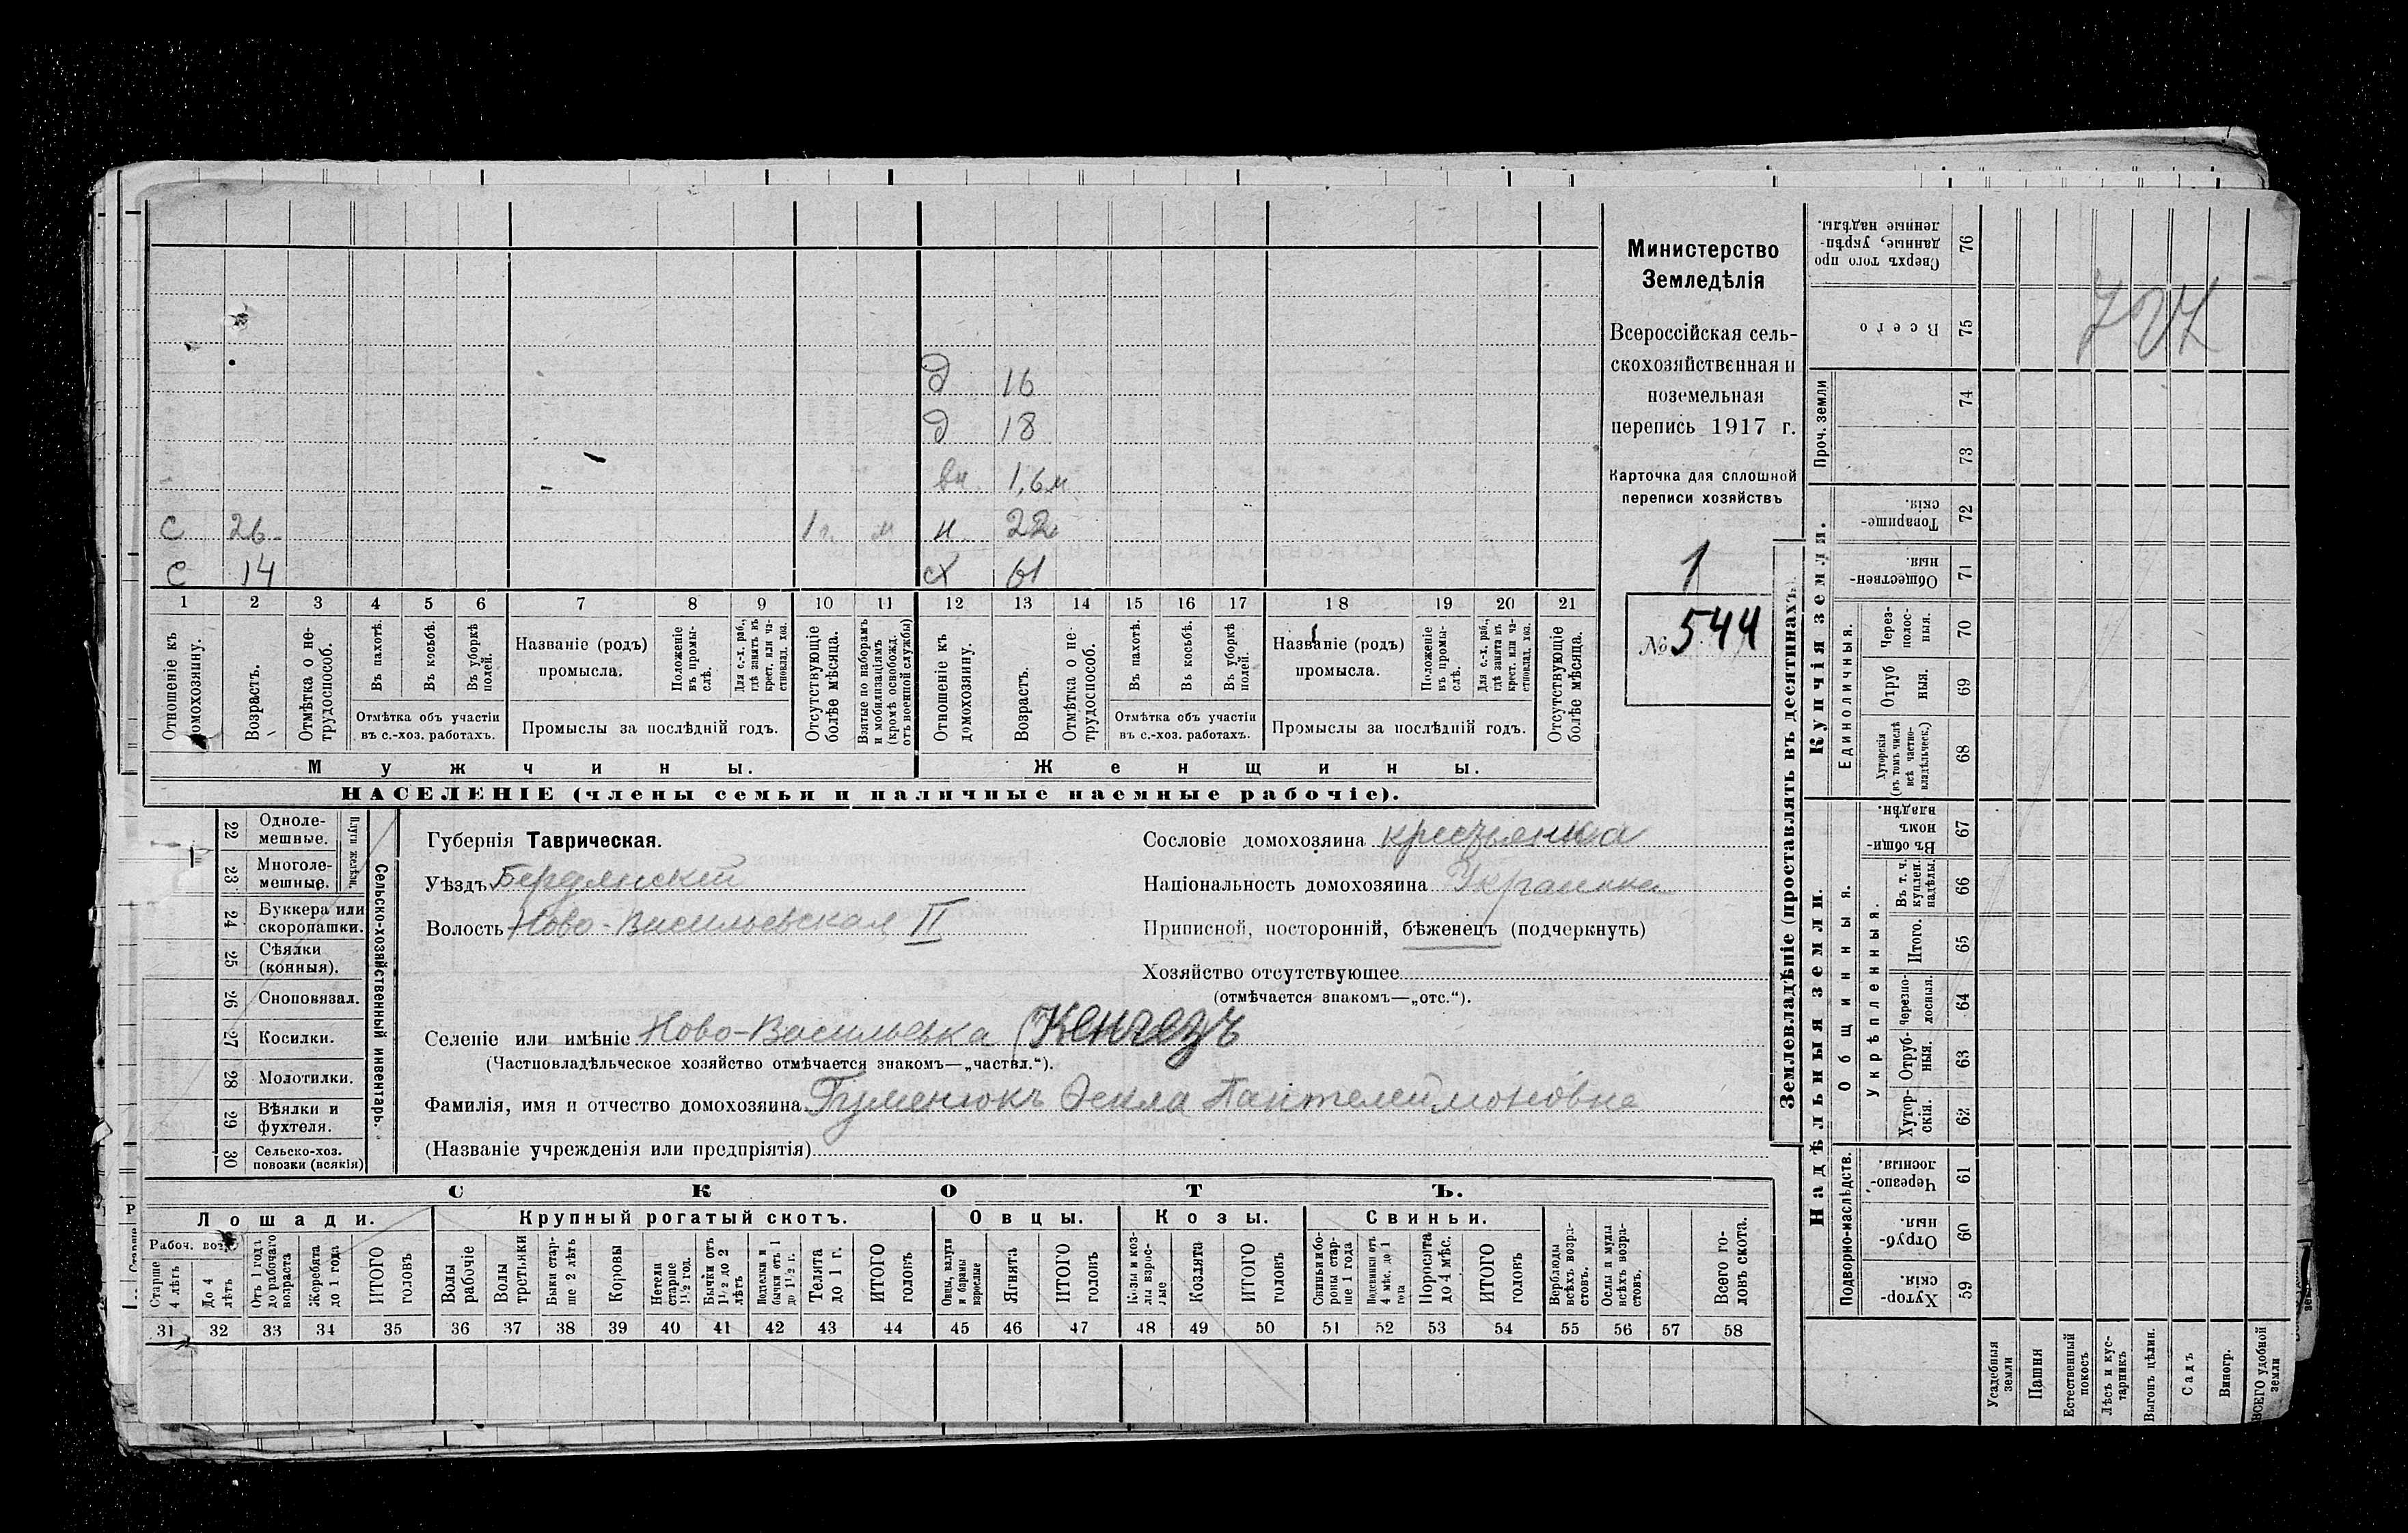 д 16
д 18
вн. 1,6 м
С 26 1 г. м н. 22
С 14 сх 61
1 2 3 4 5 6 7 8 9 10 11 12 13 14 15 16 17 18 19 20 21
Отношеніе къ домохозяину.
Возрастъ.
Отмѣтка о нетрудоспособ.
Въ пахотѣ.
Въ косьбѣ.
Въ уборкѣ полей.
Отмѣтка объ участіи
въ с.-хоз. работахъ.
Названіе (родъ)
промысла.
Положеніе въ промыслѣ.
Для с.-х. раб., гдѣ занятъ въ крест. или частновлад. хоз.
Промыслы за послѣдній годъ.
Отсутствующіе болѣе мѣсяца.
Взятые по наборамъ и мобилизаціямъ (кромѣ освобожд. отъ военной службы)
Отношеніе къ домохозяину.
Возрастъ.
Отмѣтка о нетрудоспособ.
Въ пахотѣ.
Въ косьбѣ.
Въ уборкѣ полей.
Отмѣтка объ участіи
въ с.-хоз. работахъ.
Названіе (родъ)
промысла.
Положеніе въ промыслѣ.
Для с.-х. раб., гдѣ занята въ крест. или частновлад. хоз.
Промыслы за послѣдній годъ.
Отсутствующіе болѣе мѣсяца.
Мужчины.
Женщины.
НАСЕЛЕНІЕ (члены семьи и наличные наемные рабочіе).
Министерство
Земледѣлія
Всероссійская сель-
скохозяйственная и
поземельная
перепись 1917 г.
Карточка для сплошной
переписи хозяйствъ
1
№ 544
22 Одноле-
мешные.
23 Многоле-
мешные.
Плуги желѣзн.
24 Буккера или
скоропашки.
25 Сѣялки
(конныя).
26 Сноповязал.
27 Косилки.
28 Молотилки.
29 Вѣялки и
фухтеля.
30 Сельско-хоз.
повозки (всякія)
Сельско-хозяйственный инвентарь.
Губернія Таврическая.
Уѣздъ Бердянскій
Волость Ново-Васильевская II
Сословіе домохозяина крестьянка
Національность домохозяина Украинка
Приписной, посторонній, бѣженецъ (подчеркнуть)
Хозяйство отсутствующее
(отмѣчается знакомъ—„отс.“).
Селеніе или имѣніе Ново-Васильевка (Кенгезъ
(Частновладѣльческое хозяйство отмѣчается знакомъ—„частвл.“).
Фамилія, имя и отчество домохозяина Гуменюкъ Фекла Пантелеймоновна
(Названіе учрежденія или предпріятія)
СКОТЪ.
Лошади.
Крупный рогатый скотъ.
Овцы.
Козы.
Свиньи.
Рабоч. воз.
Старше 4 лѣтъ
До 4 лѣтъ
Отъ 1 года до рабочаго возраста
Жеребята до 1 года
ИТОГО головъ
Волы рабочіе
Волы третьяки
Быки старше 2 лѣтъ
Коровы
Нетели старше 1½ год.
Бычки отъ 1½ до 2 лѣтъ
Подтелки и бычки отъ 1 до 1½ г.
Телята до 1 г.
ИТОГО головъ
Овцы, валухи и бараны взрослые
Ягнята
ИТОГО головъ
Козы и козлы взрослые
Козлята
ИТОГО головъ
Свиньи и бороны старше 1 года
Подсвинки отъ 4 мѣс. до 1 года
Поросята до 4 мѣс.
ИТОГО головъ
Верблюды всѣхъ возрастовъ.
Ослы и мулы всѣхъ возрастовъ.
Всего головъ скота.
31 32 33 34 35 36 37 38 39 40 41 42 43 44 45 46 47 48 49 50 51 52 53 54 55 56 57 58
Землевладѣніе (проставлять въ десятинахъ).
Купчія земли.
Надѣльныя земли.
Проч. земли
Единоличныя.
Общинныя.
Укрѣпленныя.
Подворно-наслѣдств.
Сверхъ того проданные, укрѣпленные надѣлы. 76
Всего 75
74
73
Товарищескія. 72
Общественныя. 71
Черезполосныя. 70
Отрубныя. 69
Хуторскія (въ томъ числѣ всѣ частновладѣльческ.) 68
Въ общинномъ владѣн. 67
Въ т. ч. куплен. надѣлы. 66
Итого. 65
Черезполосныя. 64
Отрубныя. 63
Хуторскія. 62
Черезполосныя. 61
Отрубныя. 60
Хуторскія. 59
Усадебныя земли
Пашня
Естественный покосъ
Лѣсъ и кустарникъ
Выгонъ цѣлин.
Садъ
Виногр.
ВСЕГО удобной земли